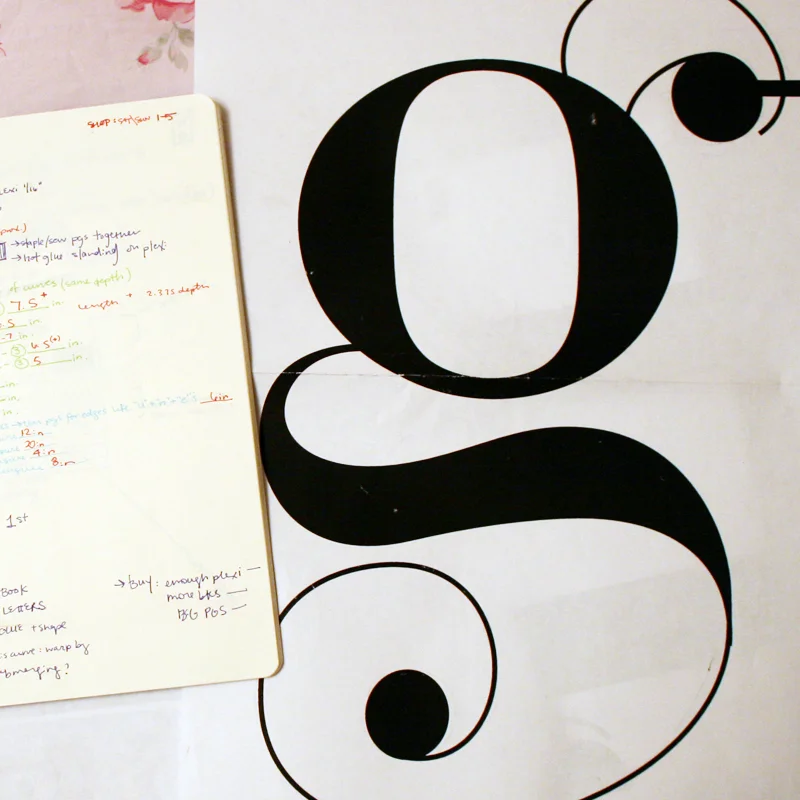 1-5
1/16"
→staple/sew pgs together
→hot glue standing on plexi
of curves (same depth)
7.5+ in. length + 2.375 depth
.5 in.
.7 in.
- ③ 6.5(+) in.
- ② 5 in.
in.
in.
in.
pgs for edges like 6in
12in
20in
4in
8in
1st
BOOK
LETTERS
GLUE + shape
curve: warp by
submerging?
→ Buy: enough plexi —
more bks —
BG PGS —
g